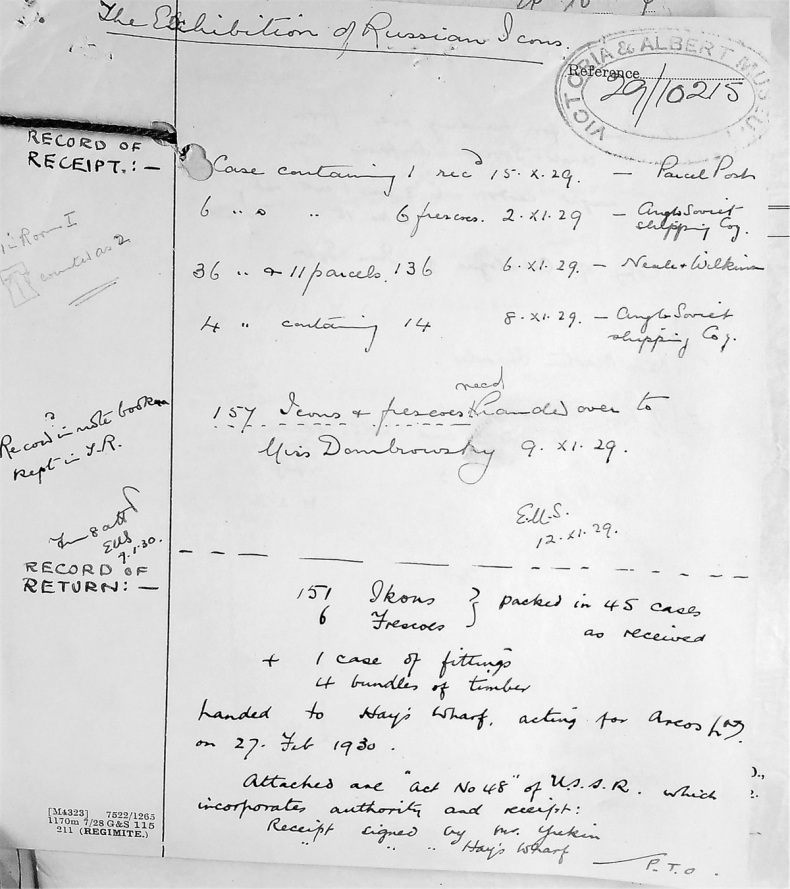 The Exhibition of Russian Icons.
VICTORIA & ALBERT MUSEUM
Reference
29/10215
RECORD OF
RECEIPT:—
Case containing 1 recd 15.X.29. — Parcel Post
6 " " " 6 frescoes. 2.XI.29 — Anglo Soviet
shipping Coy.
36 " & 11 parcels. 136 6.XI.29. — Neale & Wilkinson
4 " containing 14 8.XI.29. — Anglo Soviet
shipping Coy.
in Room I
counted as 2
recd
157 Icons & frescoes handed over to
Miss Dombrowsky 9.XI.29.
?
Record in note book
kept in T.R.
E.U.S.
12.XI.29.
EUS
9.1.30.
RECORD OF
RETURN:—
151 Ikons } packed in 45 cases
6 Frescoes as received
+ 1 case of fittings
4 bundles of timber
handed to Hay's Wharf, acting for Arcos Ltd.
on 27. Feb 1930.
Attached are "Act No 48" of U.S.S.R. which
incorporates authority and receipt:
Receipt signed by Mr.
" " " Hay's Wharf
P.T.O.
[M4323] 7522/1265
1170m 7/28 G&S 115
211 (REGIMITE.)